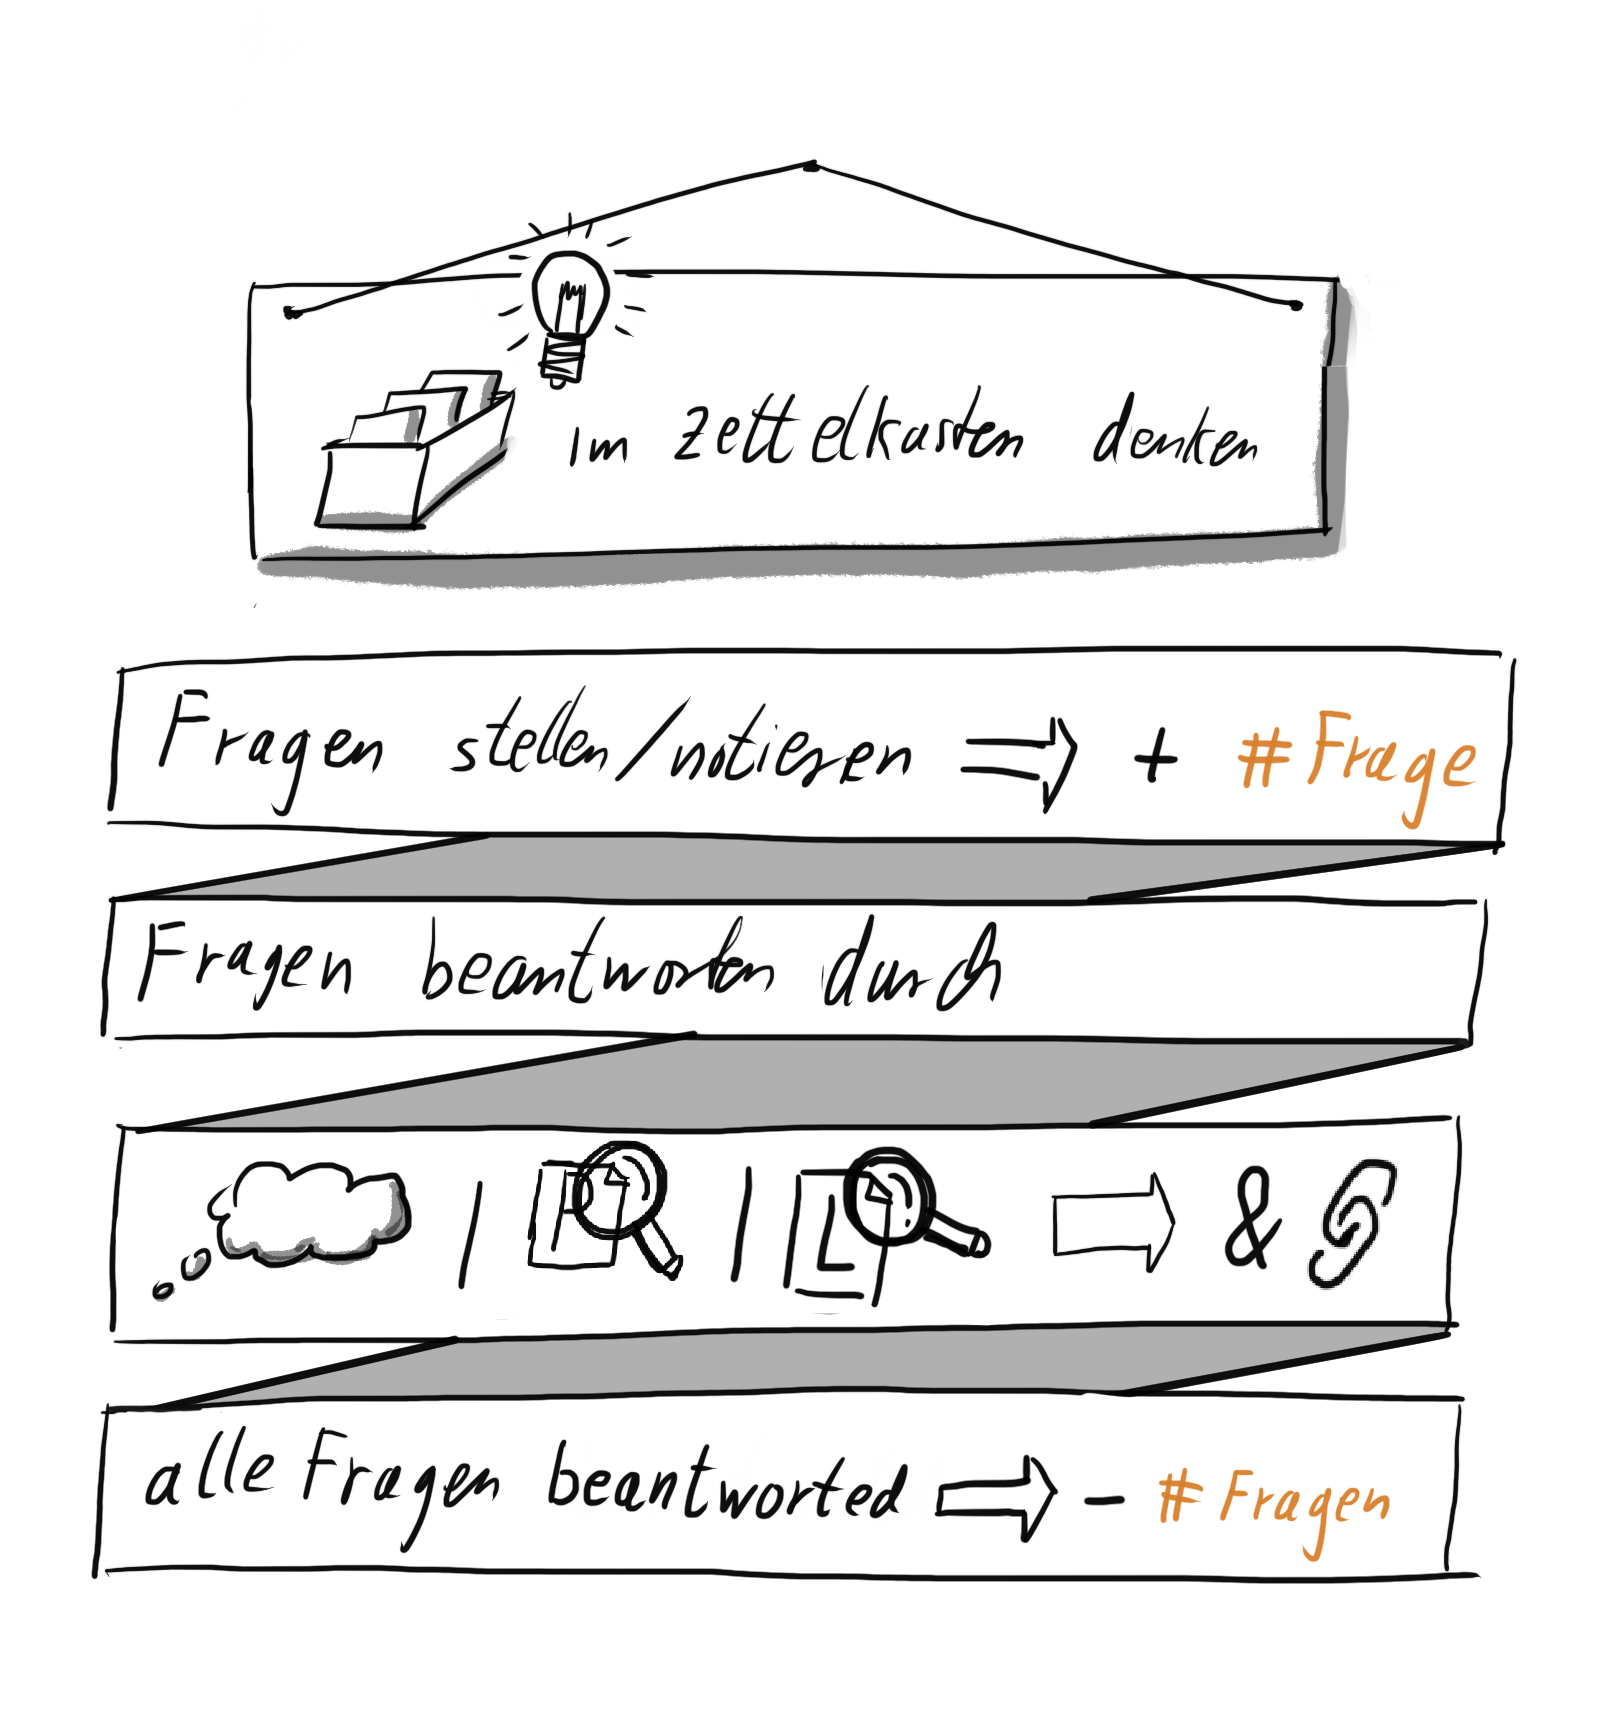 im Zettelkasten denken
Fragen stellen/notieren ⇒ + #Frage
Fragen beantworten durch
| P | L ⇒ &
alle Fragen beantworted ⇒ - #Fragen